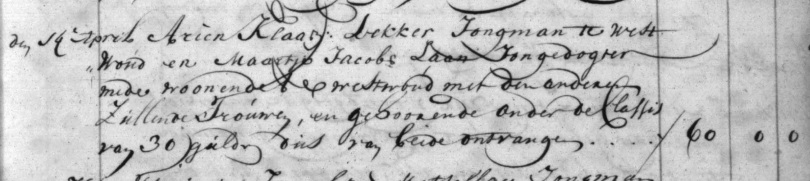 den 19 april Arien Klaasz: Dekker Jongman te West
Woud en Maartje Jacobs Laan Jongedogter
mede woonende te westwoud met den anderen
Zullende Trouwen, en gehoorende onder de Classis
van 30 guldn dus van beide ontvangen . . . . . 60 0 0
Jongman